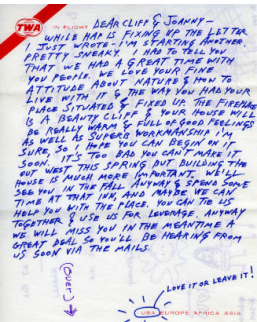 TWA
IN FLIGHT
DEAR CLIFF & JOANNY -
WHILE HAP IS FIXING UP THE LETTER
I JUST WROTE - I'M STARTING ANOTHER.
PRETTY SNEAKY I HAD TO TELL YOU
THAT WE HAD A GREAT TIME WITH
YOU PEOPLE. WE LOVE YOUR FINE
ATTITUDE ABOUT NATURE & HOW TO
LIVE WITH IT & THE WAY YOU HAD YOUR
PLACE SITUATED & FIXED UP THE FIREPLACE
IS A BEAUTY CLIFF & YOUR HOUSE WILL
BE REALLY WARM & FULL OF GOOD FEELINGS
AS WELL AS SUPERB WORKMANSHIP I'M
SURE. SO I HOPE YOU CAN BEGIN ON IT
SOON. IT'S TOO BAD YOU CAN'T MAKE IT
OUT WEST THIS SPRING BUT BUILDING THE
HOUSE IS MUCH MORE IMPORTANT. WE'LL
SEE YOU IN THE FALL ANYWAY & SPEND SOME
TIME AT THAT INK, AND MAYBE WE CAN
HELP YOU WITH THE PLACE. YOU CAN TIE US
TOGETHER & USE US FOR LEVERAGE. ANYWAY
WE WILL MISS YOU IN THE MEANTIME A
GREAT DEAL SO YOU'LL BE HEARING FROM
US SOON VIA THE MAILS.
(OVER)
LOVE IT OR LEAVE IT!
USA EUROPE AFRICA ASIA